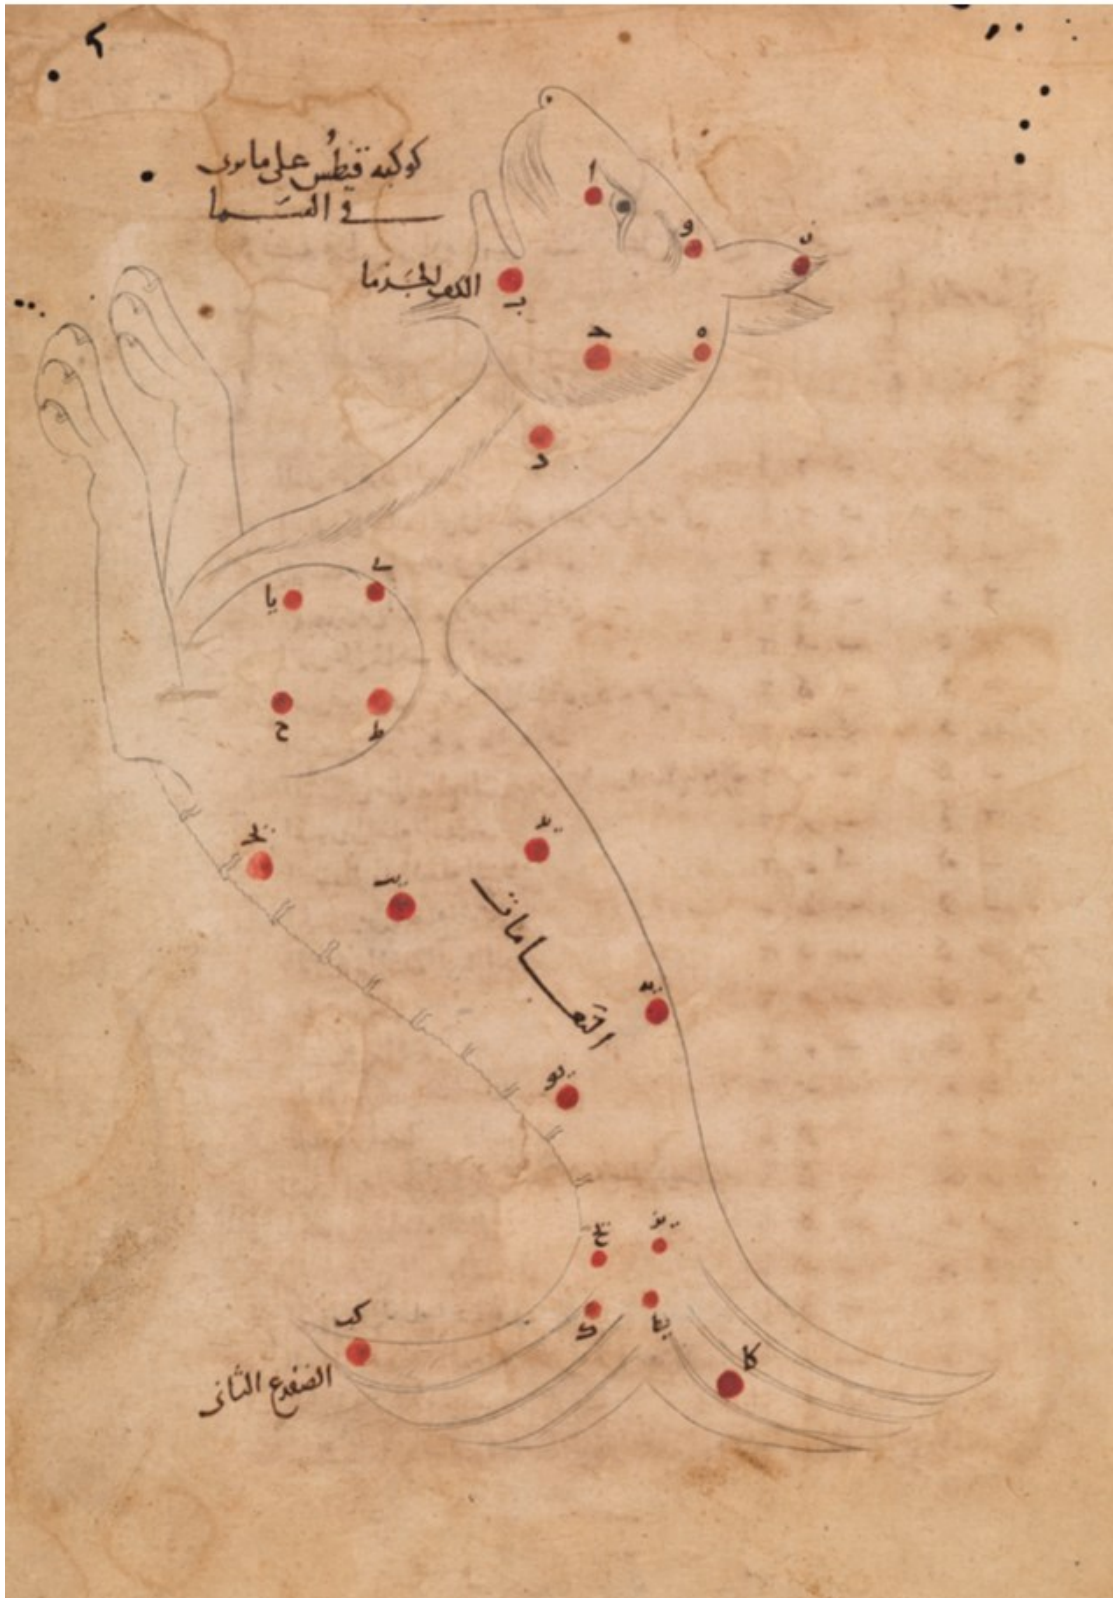 كوكبه قيطُس على ما يرى
في السما
الكف الجذما
ا
و
ز
ب
ح
ه
د
ى
يا
ح
ط
يج
يد
يب
النعامات
يه
يو
يح
يز
ك
يط
كب
كا
الضفدع الثانى